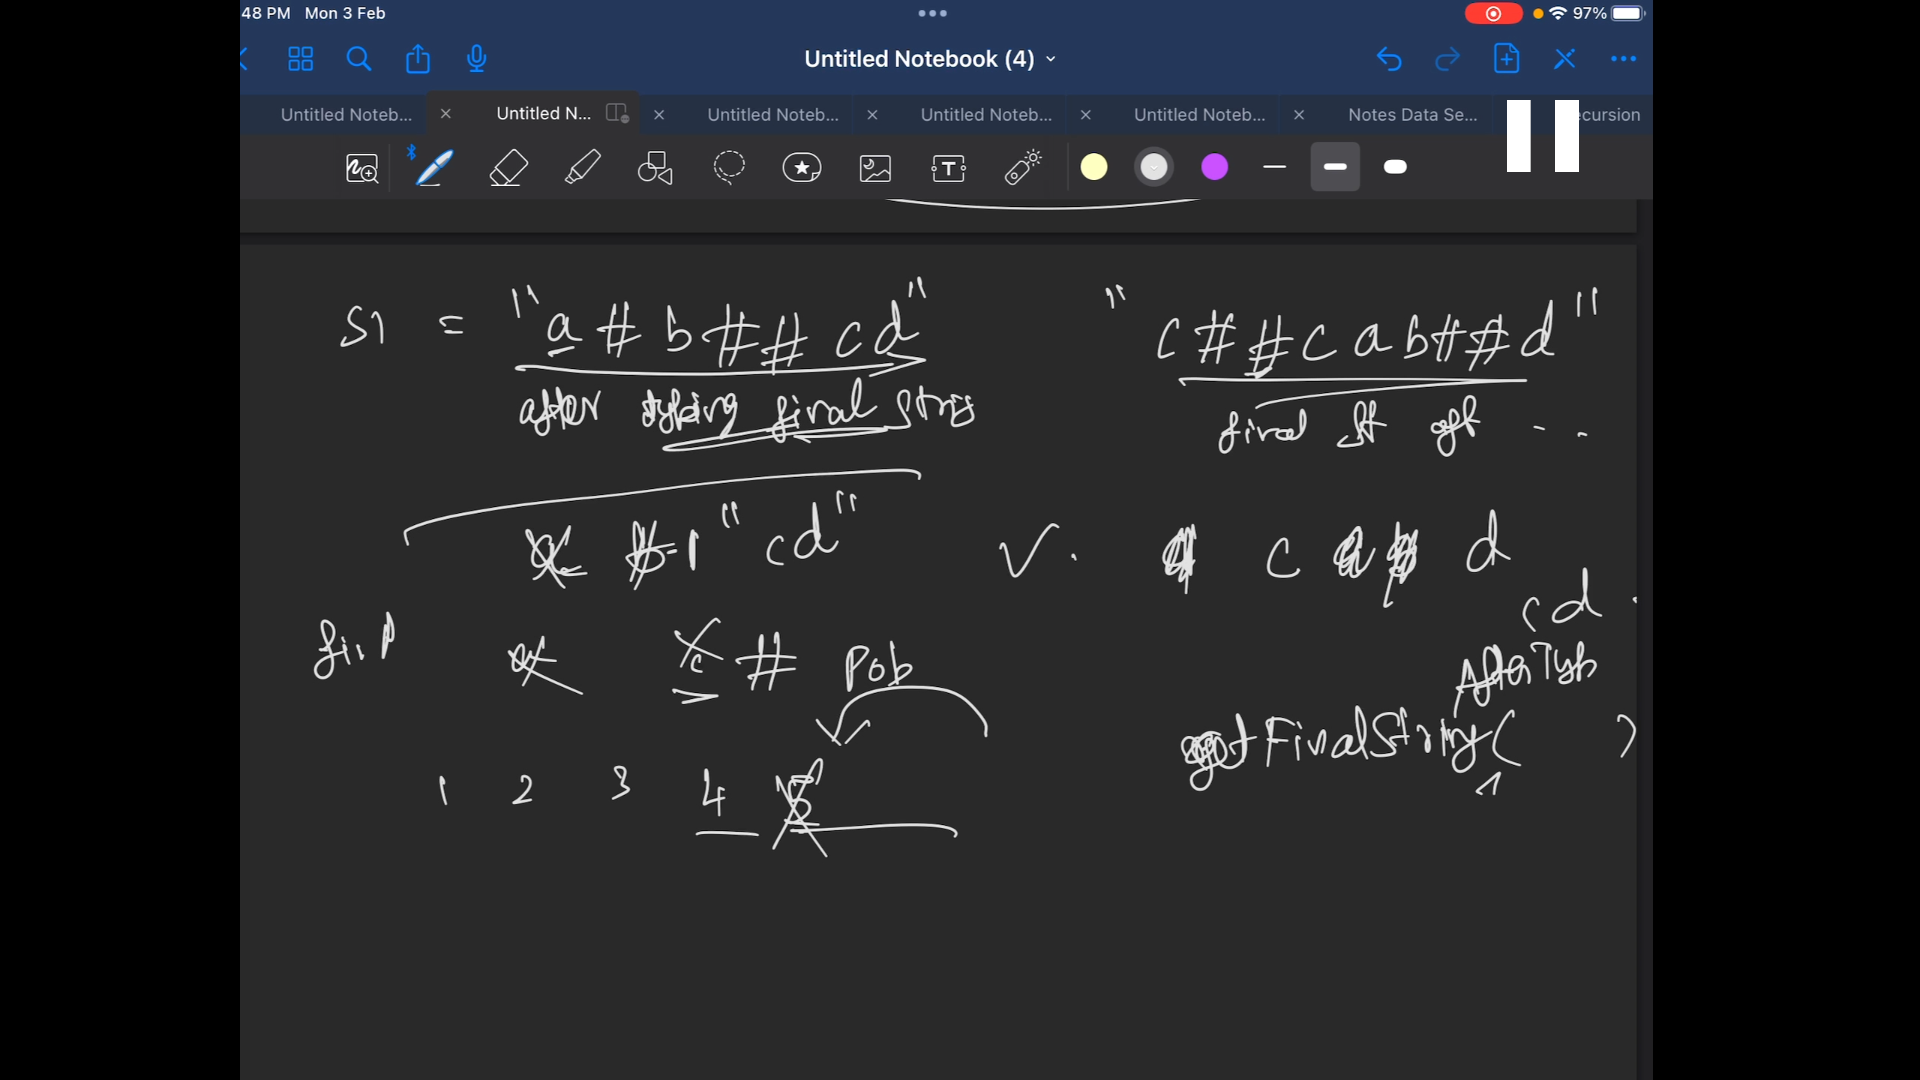 48 PM Mon 3 Feb
97%
Untitled Notebook (4)
Untitled Noteb...
Untitled N...
Untitled Noteb...
Untitled Noteb...
Untitled Noteb...
Notes Data Se...
ecursion
T
S1 = "a # b # # c d"
"c # # c a b # # d"
after final
final St aft - ..
"cd"
c d
cd
c # Pob
AfterTyb
getFinalString( )
1 2 3 4 5